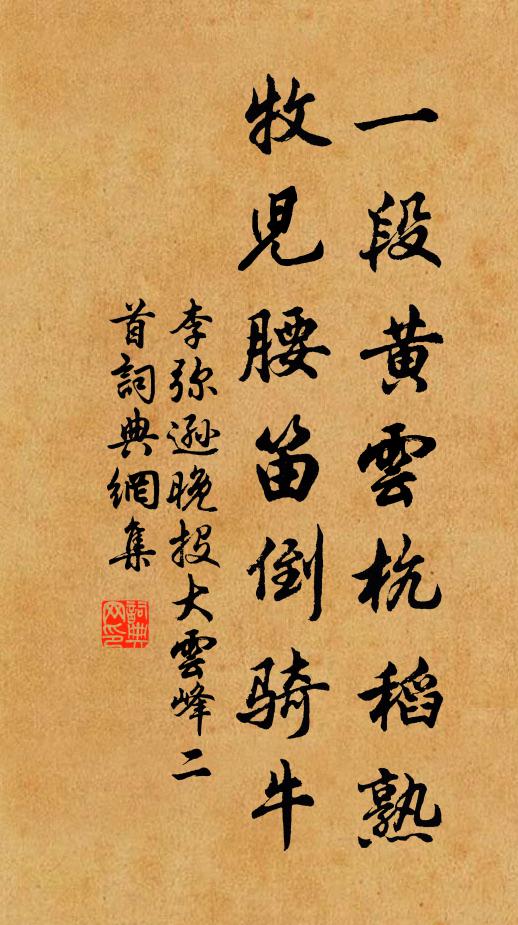 一段黄雲杭稻熟
牧児腰笛倒騎牛
李弥遜晚投大雲峰二
首詞典網集
詞典
网印